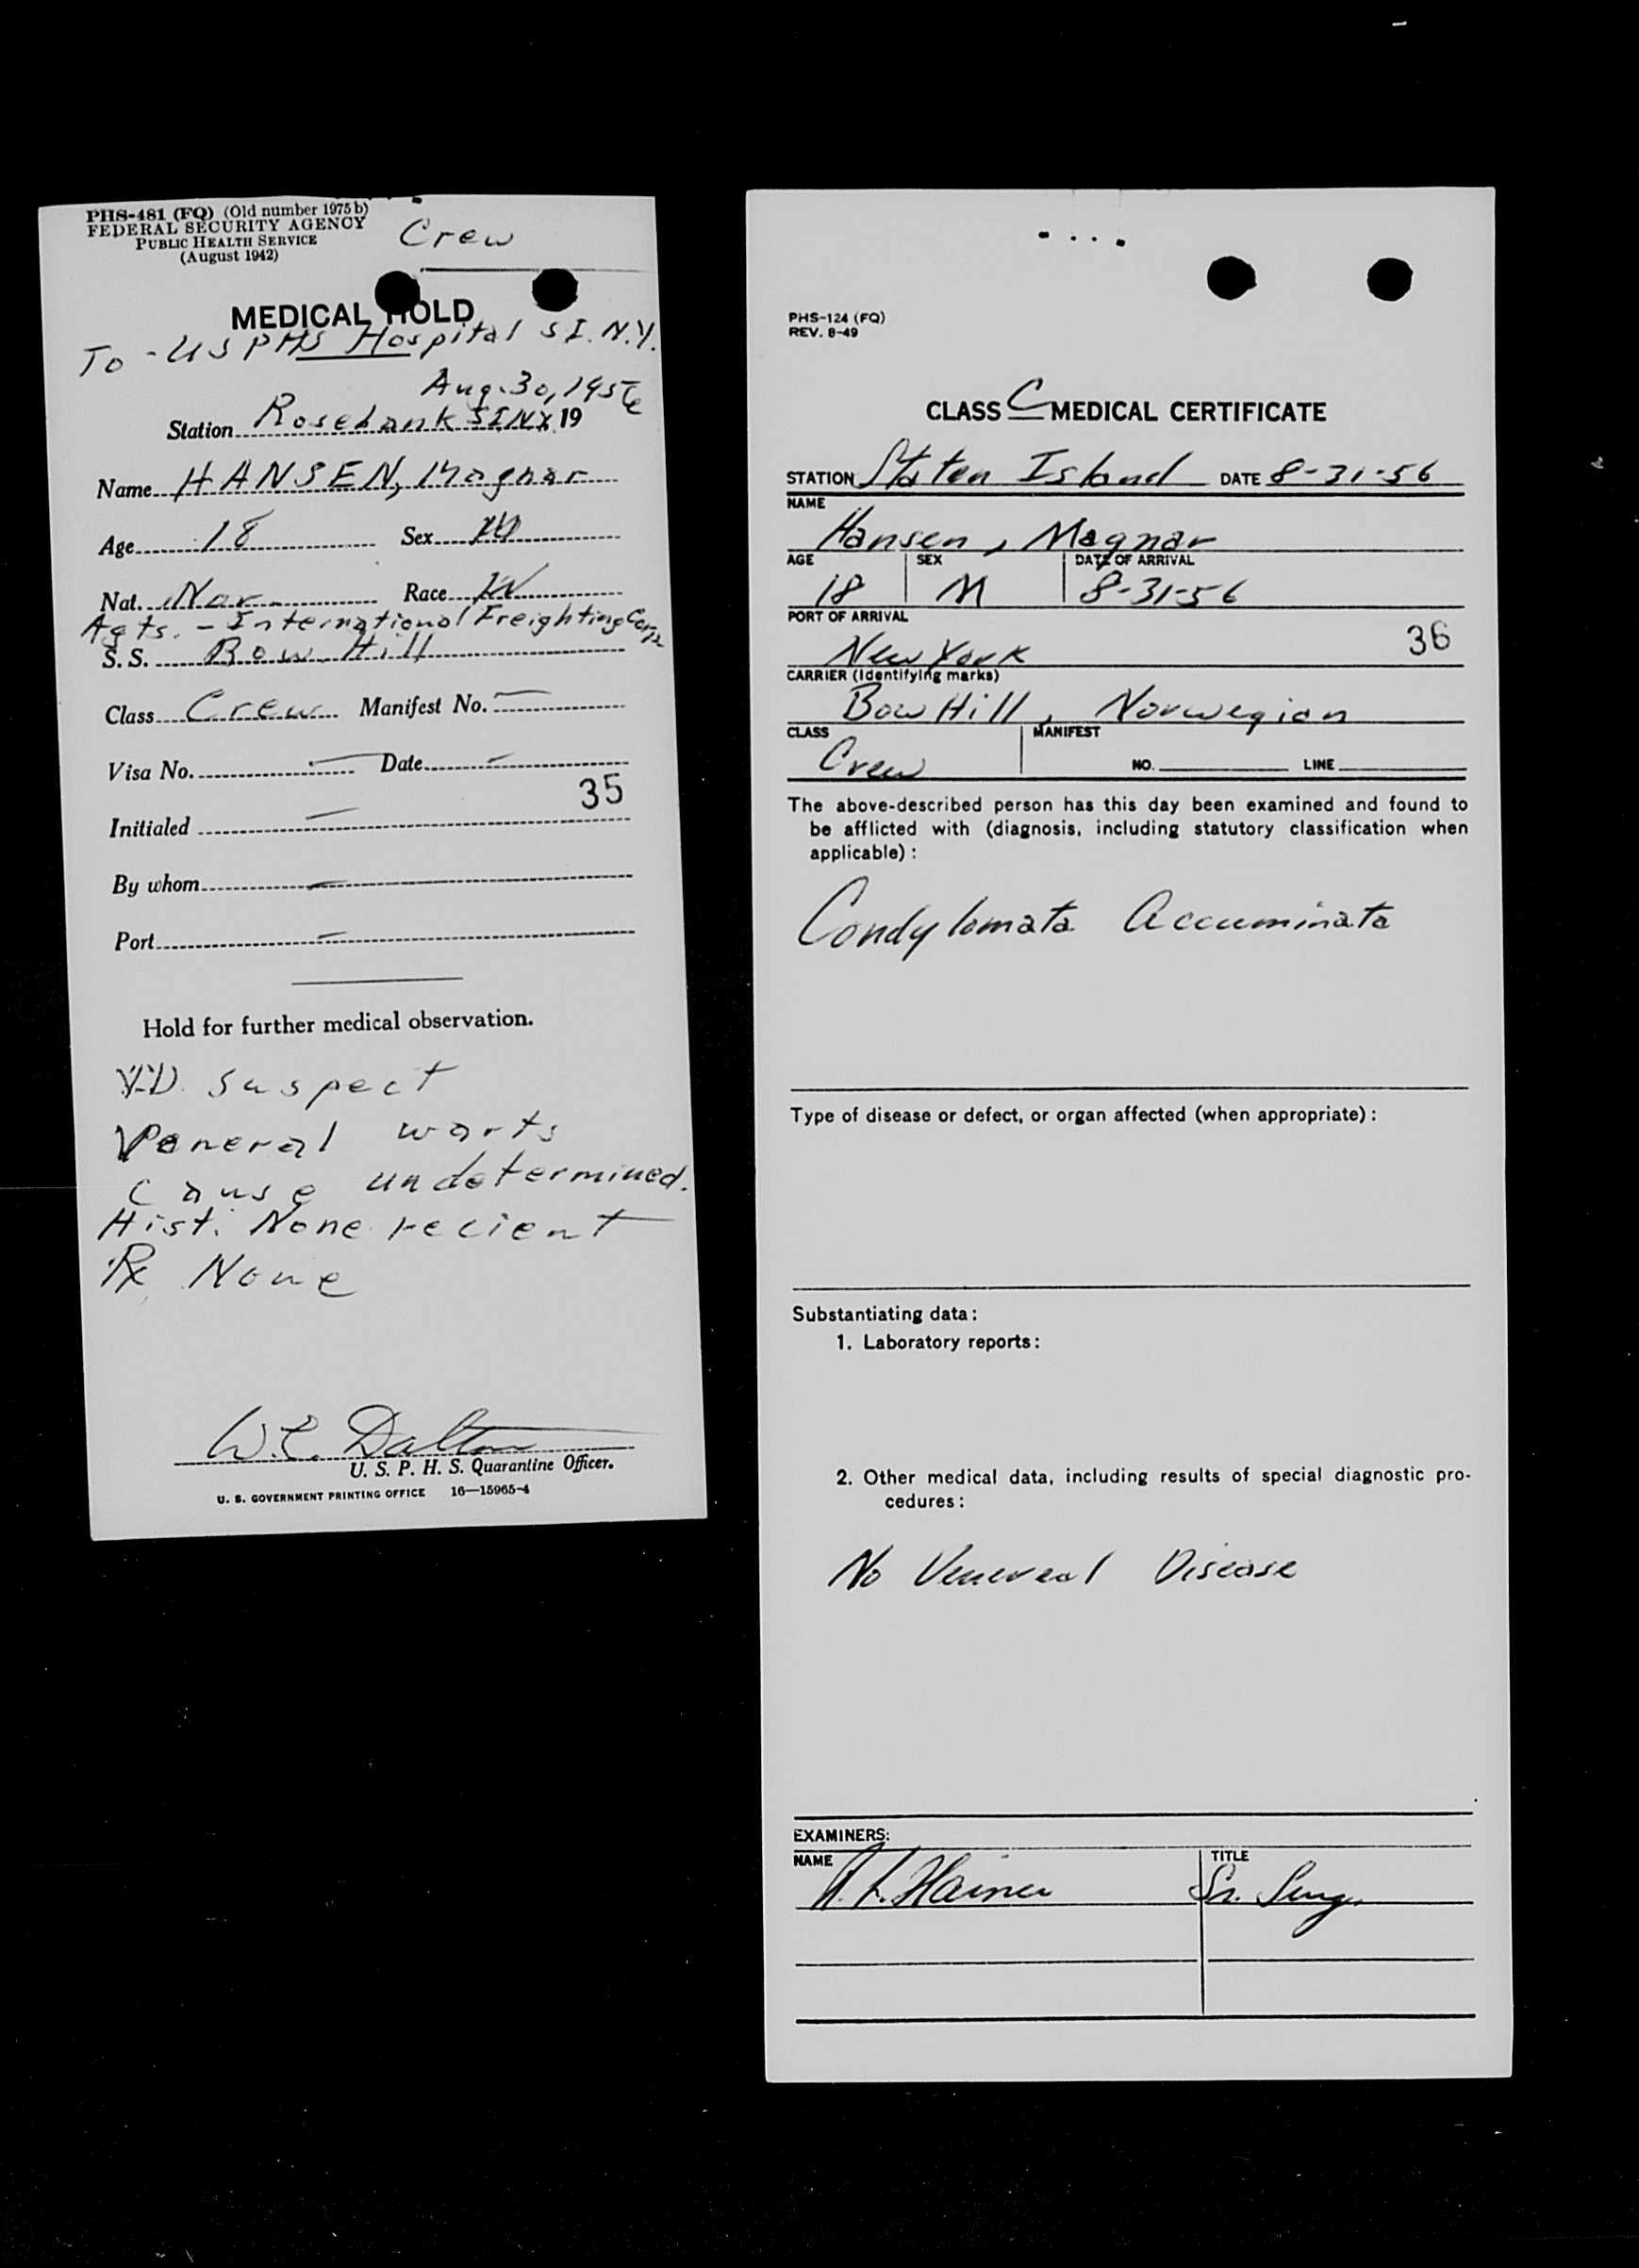 PHS-481 (FQ) (Old number 1975 b)
FEDERAL SECURITY AGENCY
PUBLIC HEALTH SERVICE
(August 1942)
Crew
MEDICAL HOLD
To - USPHS Hospital S.I. N.Y.
Aug. 30, 1956
Station Rosebank S.I.N.Y. 19
Name HANSEN, Magnar
Age 18 Sex M
Nat. Nor. Race W
Agts. - International Freighting Corp
S. S. Bow Hill
Class Crew Manifest No. —
Visa No. — Date —
35
Initialed —
By whom —
Port —
Hold for further medical observation.
V.D. suspect
Veneral warts
cause undetermined.
Hist. None recient
Rx None
W.C. Dalton
U. S. P. H. S. Quarantine Officer.
U. S. GOVERNMENT PRINTING OFFICE 16—15965-4
PHS-124 (FQ)
REV. 8-49
CLASS C MEDICAL CERTIFICATE
STATION Staten Island DATE 8-31-56
NAME
Hansen, Magnar
AGE SEX DATE OF ARRIVAL
18 M 8-31-56
PORT OF ARRIVAL
New York 36
CARRIER (Identifying marks)
Bow Hill, Norwegian
CLASS MANIFEST
Crew NO. LINE
The above-described person has this day been examined and found to
be afflicted with (diagnosis, including statutory classification when
applicable):
Condylomata Accuminata
Type of disease or defect, or organ affected (when appropriate):
Substantiating data:
1. Laboratory reports:
2. Other medical data, including results of special diagnostic pro-
cedures:
No Venereal Disease
EXAMINERS:
NAME TITLE
Sr. Surg.